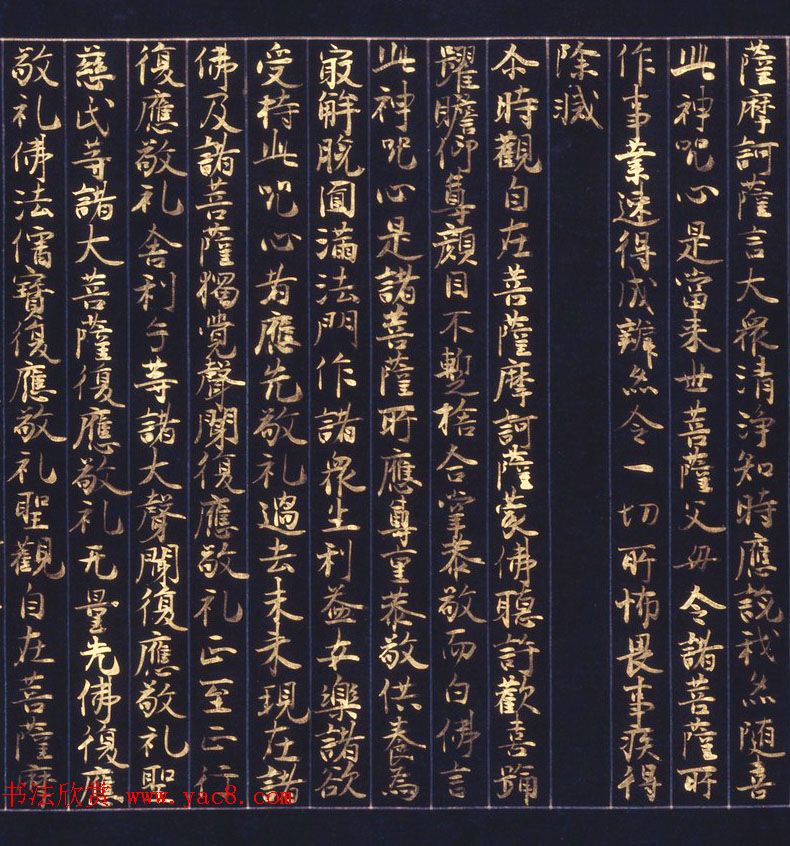 薩摩訶薩言大衆清淨知時應説我亦随喜
此神呪心是當来世菩薩父母令諸菩薩所
作事業速得成辦亦令一切所怖畏事疾得
除滅
尒時觀自在菩薩摩訶薩蒙佛聽許歡喜踊
躍瞻仰尊顔目不蹔捨合掌恭敬而白佛言
此神呪心是諸菩薩所應尊重恭敬供養為
㝡解脱圓滿法門作諸衆生利益安樂諸欲
受持此呪心者應先敬礼過去未来現在諸
佛及諸菩薩獨覺聲聞復應敬礼正至正行
復應敬礼舍利子等諸大聲聞復應敬礼聖
慈氏等諸大菩薩復應敬礼无量先佛復應
敬礼佛法僧寶復應敬礼聖觀自在菩薩摩
书法欣赏 www.yac8.com